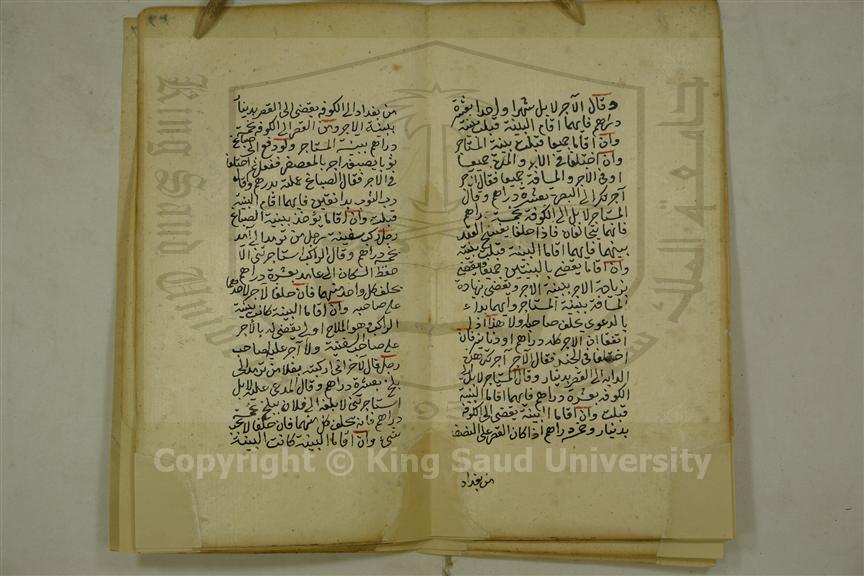 وقال الآجر لا بل شهرا واحدا بعشرة
دراهم فايهما اقام البينة قبلت بينته
وان اقاما جميعا قبلت بينة المستاجر
وان اختلفا في الاجر والمدة جميعا
او في الاجر والمسافة جميعا فقال الآجر
آجرتك الى البصرة بعشرة دراهم وقال
المستاجر لا بل الى الكوفة بخمسة دراهم
فانهما يتحالفان فاذا حلفا يفسخ العقد
بينهما وايهما اقام البينة قبلت بينته
وان اقاما يقضى بالبينتين جميعا فيقضى
بزيادة الاجر ببينة الآجر ويقضى بزيادة
المسافة ببينة المستاجر وايهما بداء
بالدعوى يحلف صاحبه اولا هذا اذا
اتفقا ان الاجر كله دراهم او دنانير فان
اختلفا في الجنس فقال الآجر آجرتك هذه
الدابة الى القصر بدينار وقال المستاجر لا بل الى
الكوفة بعشرة دراهم فايهما اقام البينة
قبلت وان اقاما البينة يقضى الى الكوفة
بدينار وخمسة دراهم اذا كان القصر على النصف
من بغداد
من بغداد الى الكوفة يقضى الى القصر بدينار
ببينة الآجر ومن القصر الى الكوفة بخمسة
دراهم ببينة المستاجر ولو دفع الى صباغ
ثوبا يصبغه احمر بالعصفر ففعل ثم اختلفا
في الاجر فقال الصباغ عملته بدرهم وقال
رب الثوب بدانقين فايهما اقام البينة
قبلت وان اقاما يؤخذ ببينة الصباغ
رجل ركب سفينة رجل من ترمد الى آمد
بخمسة دراهم وقال الراكب استاجرتني الا
حفظ السكان الى عامد بعشرة دراهم
يحلف كل واحد منهما فان حلفا لا اجر لاحدهما
على صاحبه وان اقاما البينة كانت بينة
الراكب هو الملاح اولى يقضى له بالاجر
على صاحب السفينة ولا اجر عليه لصاحب
رجل قال لآخر اني اركبته بغلا من ترمد الى
بلخ بعشرة دراهم وقال المدعى عليه لا بل
استاجرتني لابلغه الى فلان ببلخ بخمسة
دراهم فانه يحلف كل منهما فان حلفا لا يجب
شيء وان اقاما البينة كانت البينة
Copyright © King Saud University
King Saud University
جامعة الملك سعود